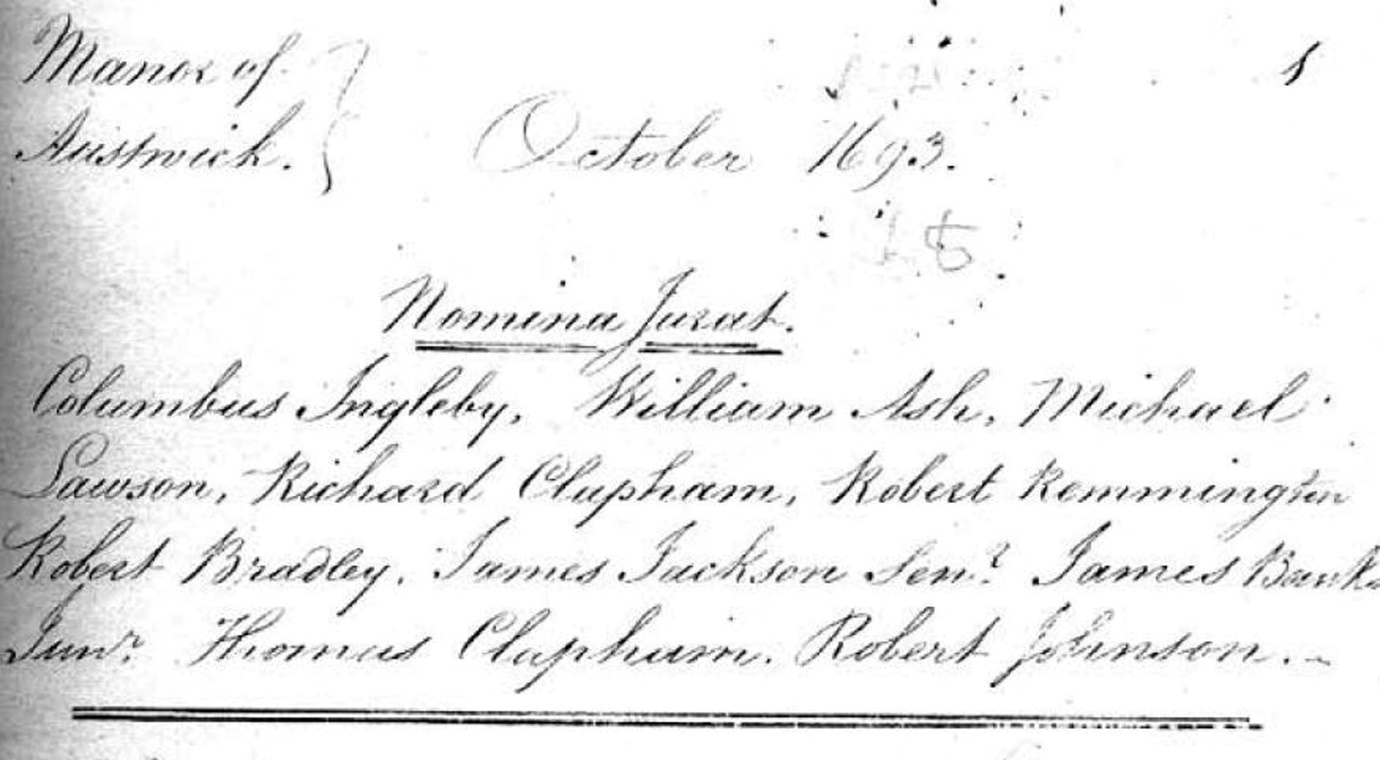 Manor of
Austwick. } October 1693.
1
Nomina Jurat.
Columbus Ingleby, William Ash, Michael
Lawson, Richard Clapham, Robert Remmington
Robert Bradley. James Jackson Senr. James Banks
Junr. Thomas Clapham. Robert Johnson.